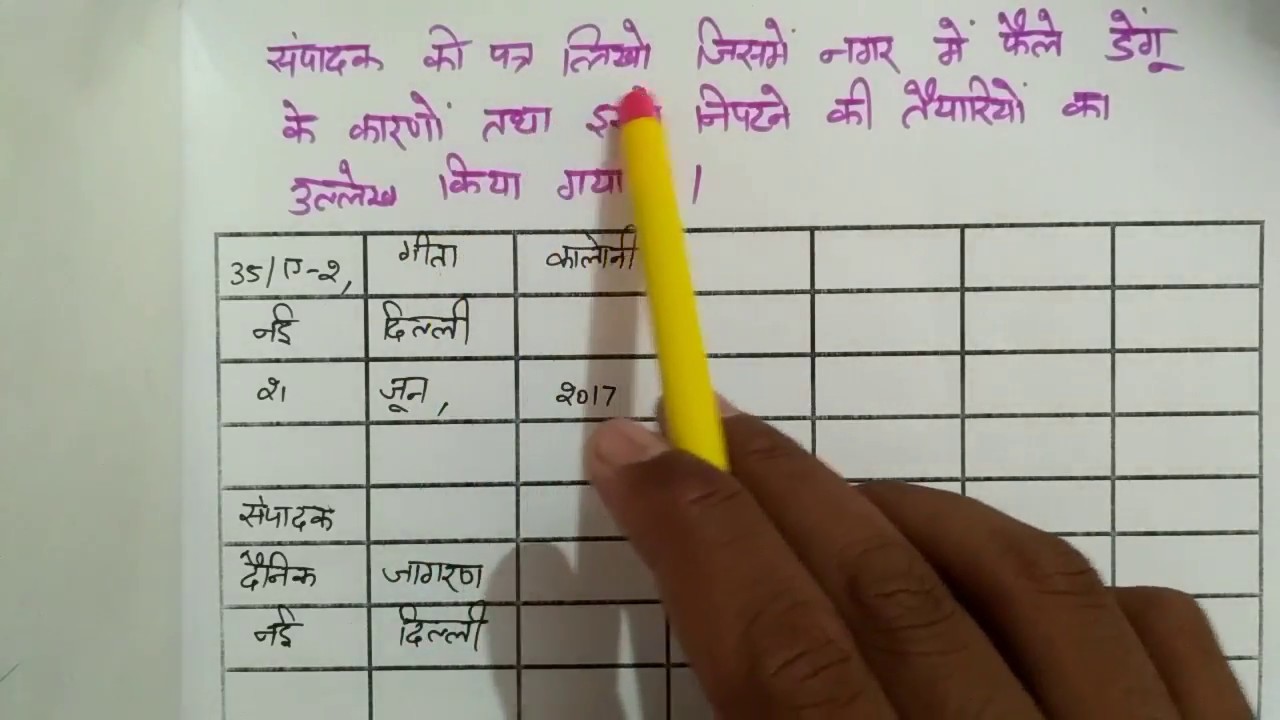 संपादक को पत्र लिखो जिसमें नगर में फैले डेंगू
के कारणों तथा निपटने की तैयारियों का
उल्लेख किया गया ।
35/ए-२, गीता कालोनी
नई दिल्ली
२१ जून, २०17
संपादक
दैनिक जागरण
नई दिल्ली